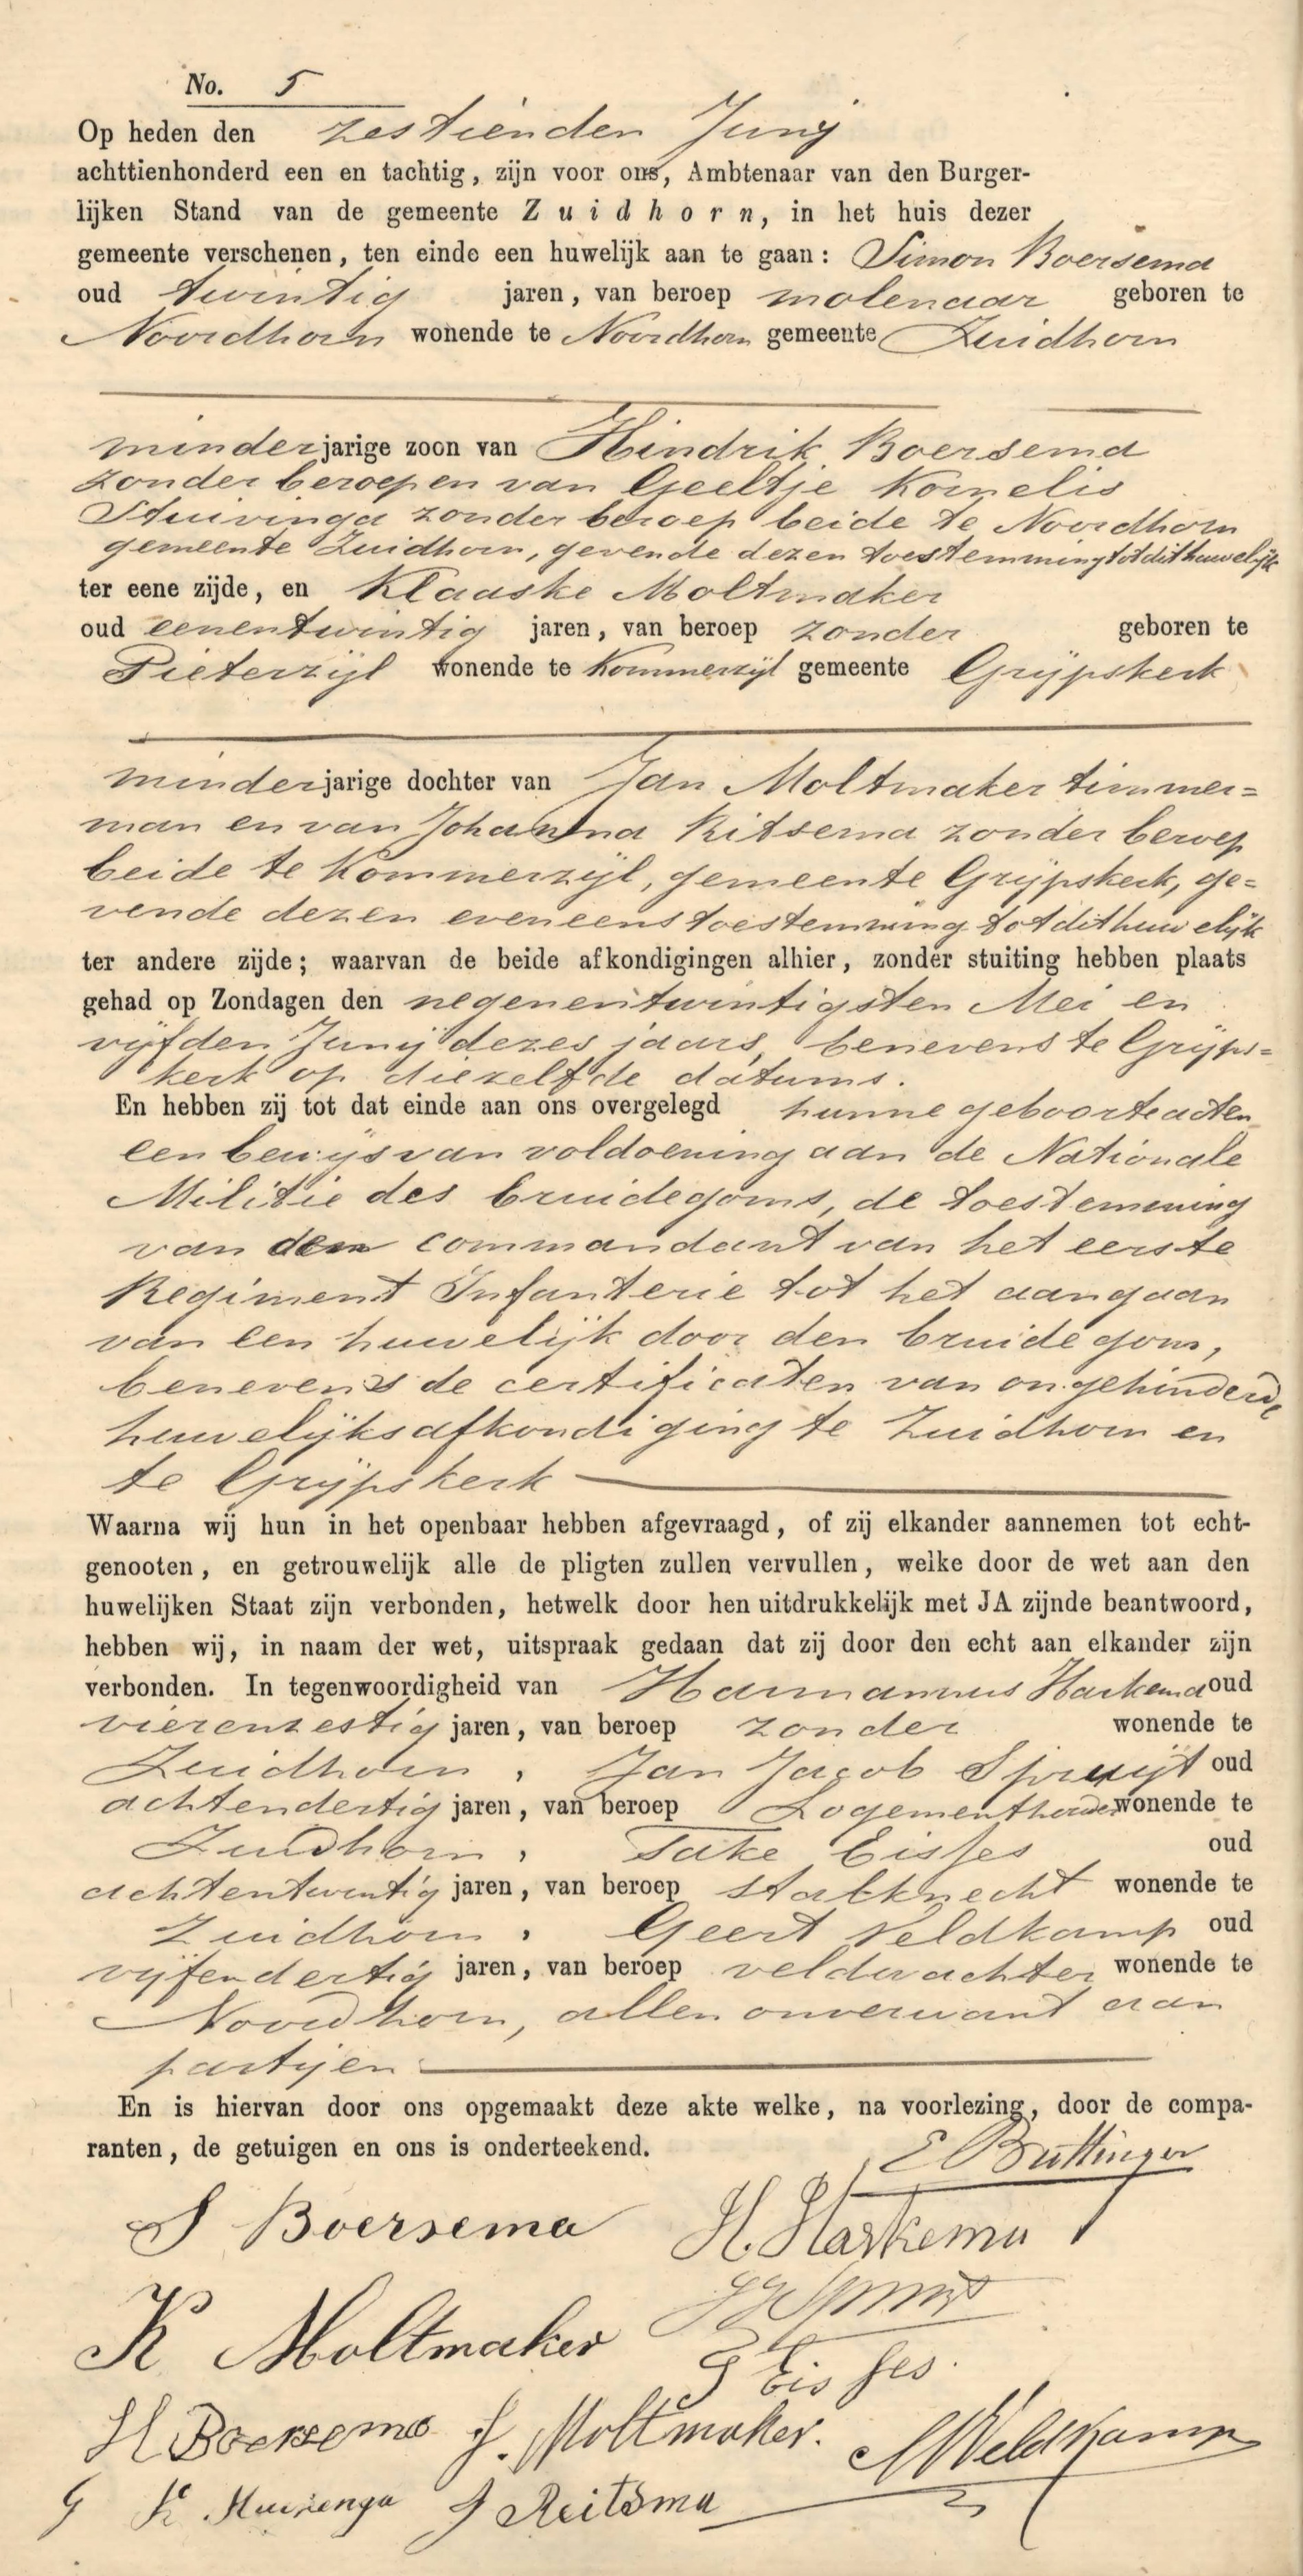 No. 5
Op heden den zestienden Junij
achttienhonderd een en tachtig, zijn voor ons, Ambtenaar van den Burger-
lijken Stand van de gemeente Zuidhorn, in het huis dezer
gemeente verschenen, ten einde een huwelijk aan te gaan: Simon Boersema
oud twintig jaren, van beroep molenaar geboren te
Noordhorn wonende te Noordhorn gemeente Zuidhorn
minderjarige zoon van Hindrik Boersema
zonder beroep en van Geeltje Kornelis
Stuivinga zonder beroep beide te Noordhorn
gemeente Zuidhorn, gevende dezen toestemming tot dit huwelijk
ter eene zijde, en Klaaske Moltmaker
oud eenentwintig jaren, van beroep zonder geboren te
Pieterzijl wonende te Kommerzijl gemeente Grijpskerk
minderjarige dochter van Jan Moltmaker timmer=
man en van Johanna Ritsema zonder beroep
beide te Kommerzijl, gemeente Grijpskerk, ge=
vende dezen eveneens toestemming tot dit huwelijk
ter andere zijde; waarvan de beide afkondigingen alhier, zonder stuiting hebben plaats
gehad op Zondagen den negenentwintigsten Mei en
vijfden Junij dezes jaars, benevens te Grijps=
kerk op diezelfde datums.
En hebben zij tot dat einde aan ons overgelegd hunne geboorteacten
een bewijs van voldoening aan de Nationale
Militie des bruidegoms, de toestemming
van den commandant van het eerste
Regiment Infanterie tot het aangaan
van een huwelijk door den bruidegom,
benevens de certificaten van ongehinderde
huwelijksafkondiging te Zuidhorn en
te Grijpskerk
Waarna wij hun in het openbaar hebben afgevraagd, of zij elkander aannemen tot echt-
genooten, en getrouwelijk alle de pligten zullen vervullen, welke door de wet aan den
huwelijken Staat zijn verbonden, hetwelk door hen uitdrukkelijk met JA zijnde beantwoord,
hebben wij, in naam der wet, uitspraak gedaan dat zij door den echt aan elkander zijn
verbonden. In tegenwoordigheid van Harmannus Harkema oud
vierenzestig jaren, van beroep zonder wonende te
Zuidhorn, Jan Jacob Spruijt oud
achtendertig jaren, van beroep Logementhouder wonende te
Zuidhorn, Take Eisses oud
achtentwintig jaren, van beroep stalknecht wonende te
Zuidhorn, Geert Veldkamp oud
vijfendertig jaren, van beroep veldwachter wonende te
Noordhorn, allen onverwant aan
partijen
En is hiervan door ons opgemaakt deze akte welke, na voorlezing, door de compa-
ranten, de getuigen en ons is onderteekend.
E Buttinger
S Boersema H. Harkema
K Moltmaker
T Eisses.
H Boersema J. Moltmaker. Veldkamp
G K J Reitsma